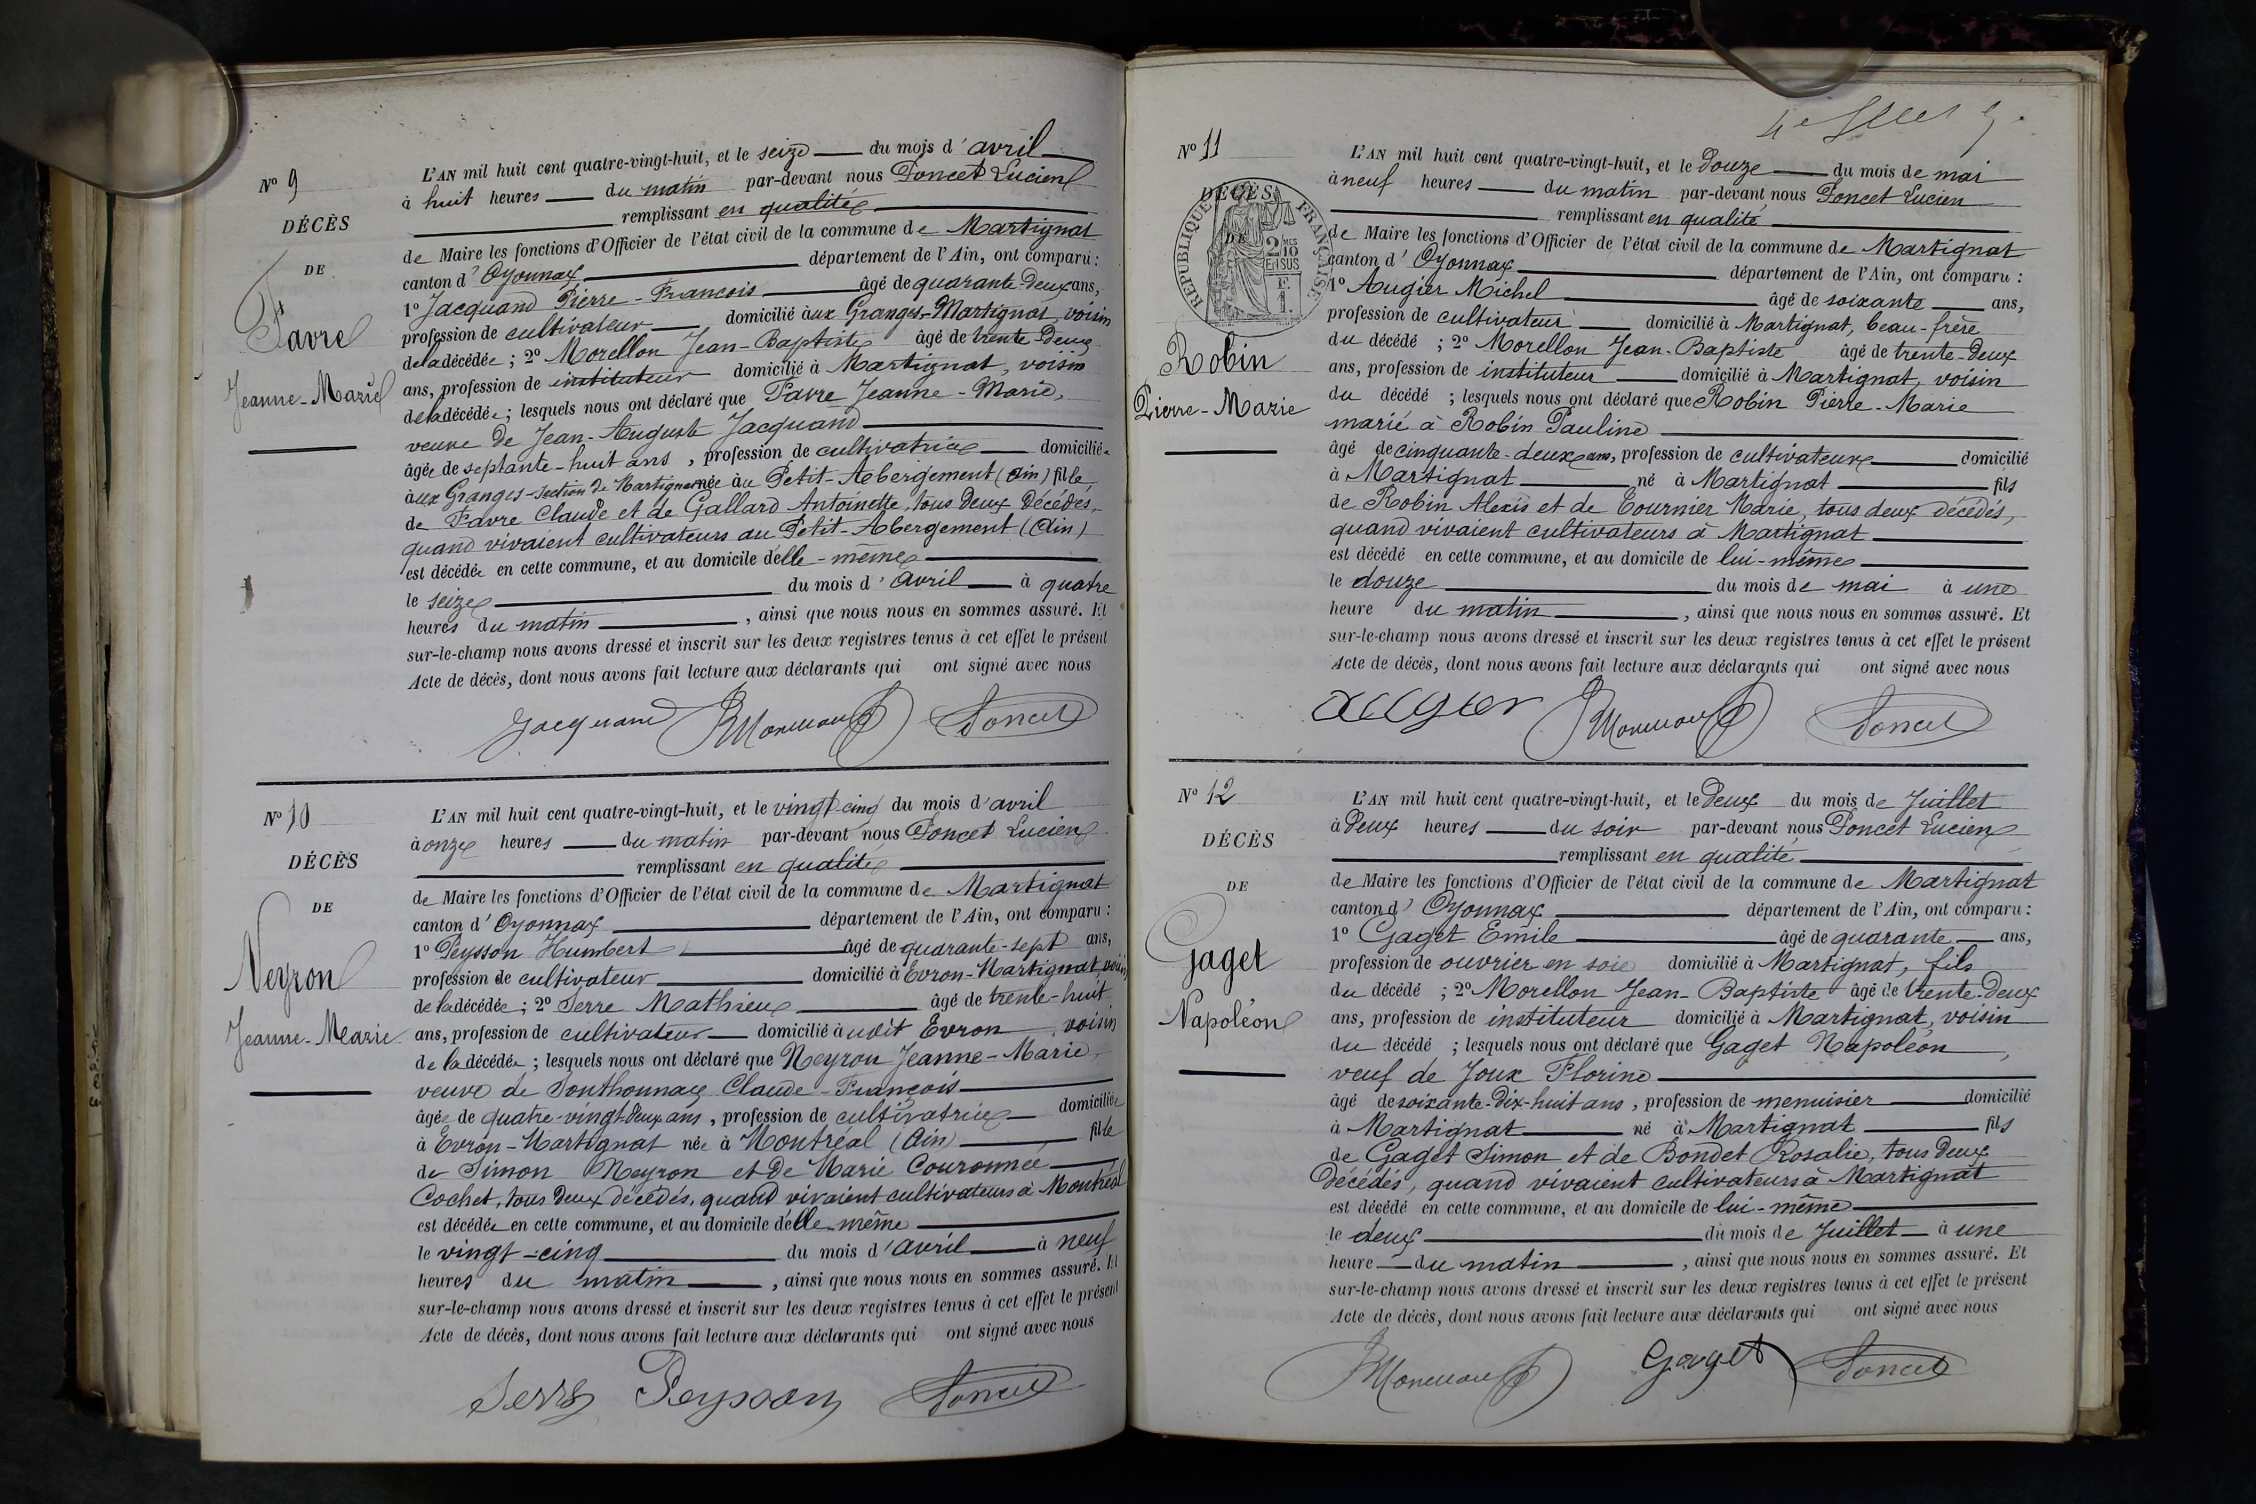 N° 9
DÉCÈS
DE
Favre
Jeanne-Marie
L'AN mil huit cent quatre-vingt-huit, et le seize du mois d'avril
à huit heures du matin par-devant nous Poncet Lucien
remplissant en qualité
de Maire les fonctions d'Officier de l'état civil de la commune de Martignat
canton d'Oyonnax département de l'Ain, ont comparu :
1° Jacquand Pierre-François âgé de quarante-deux ans,
profession de cultivateur domicilié aux Granges-Martignat, voisin
de la décédée ; 2° Morellon Jean-Baptiste âgé de trente-deux
ans, profession de instituteur domicilié à Martignat, voisin
de la décédée ; lesquels nous ont déclaré que Favre Jeanne-Marie,
veuve de Jean-Auguste Jacquand
âgée de septante-huit ans, profession de cultivatrice domiciliée
aux Granges-section de Martignat née au Petit-Abergement (Ain) fille
de Favre Claude et de Gallard Antoinette, tous deux décédés,
quand vivaient cultivateurs au Petit-Abergement (Ain)
est décédée en cette commune, et au domicile d'elle-même
le seize du mois d'avril à quatre
heures du matin, ainsi que nous nous en sommes assuré. Et
sur-le-champ nous avons dressé et inscrit sur les deux registres tenus à cet effet le présent
Acte de décès, dont nous avons fait lecture aux déclarants qui ont signé avec nous
Jacquand Poncet
N° 10
DÉCÈS
DE
Neyron
Jeanne-Marie
L'AN mil huit cent quatre-vingt-huit, et le vingt-cinq du mois d'avril
à onze heures du matin par-devant nous Poncet Lucien
remplissant en qualité
de Maire les fonctions d'Officier de l'état civil de la commune de Martignat
canton d'Oyonnax département de l'Ain, ont comparu :
1° Peysson Humbert âgé de quarante-sept ans,
profession de cultivateur domicilié à Evron-Martignat, voisin
de la décédée ; 2° Serre Mathieu âgé de trente-huit
ans, profession de cultivateur domicilié à udit Evron, voisin
de la décédée ; lesquels nous ont déclaré que Neyron Jeanne-Marie,
veuve de Sonthonnax Claude-François
âgée de quatre-vingt-deux ans, profession de cultivatrice domiciliée
à Evron-Martignat née à Montréal (Ain) fille
de Simon Neyron et de Marie Couronnée
Cochet, tous deux décédés, quand vivaient cultivateurs à Montréal
est décédée en cette commune, et au domicile d'elle-même
le vingt-cinq du mois d'avril à neuf
heures du matin, ainsi que nous nous en sommes assuré. Et
sur-le-champ nous avons dressé et inscrit sur les deux registres tenus à cet effet le présent
Acte de décès, dont nous avons fait lecture aux déclarants qui ont signé avec nous
Serre Peysson Poncet
N° 11
DÉCÈS
DE
RÉPUBLIQUE FRANÇAISE
2 10 MES EN SUS
F. 1.
Robin
Pierre-Marie
L'AN mil huit cent quatre-vingt-huit, et le douze du mois de mai
à neuf heures du matin par-devant nous Poncet Lucien
remplissant en qualité
de Maire les fonctions d'Officier de l'état civil de la commune de Martignat
canton d'Oyonnax département de l'Ain, ont comparu :
1° Augier Michel âgé de soixante ans,
profession de cultivateur domicilié à Martignat, beau-frère
du décédé ; 2° Morellon Jean-Baptiste âgé de trente-deux
ans, profession de instituteur domicilié à Martignat, voisin
du décédé ; lesquels nous ont déclaré que Robin Pierre-Marie
marié à Robin Pauline
âgé de cinquante-deux ans, profession de cultivateur domicilié
à Martignat né à Martignat fils
de Robin Alexis et de Tournier Marie, tous deux décédés,
quand vivaient cultivateurs à Martignat
est décédé en cette commune, et au domicile de lui-même
le douze du mois de mai à une
heure du matin, ainsi que nous nous en sommes assuré. Et
sur-le-champ nous avons dressé et inscrit sur les deux registres tenus à cet effet le présent
Acte de décès, dont nous avons fait lecture aux déclarants qui ont signé avec nous
Augier Poncet
N° 12
DÉCÈS
DE
Gaget
Napoléon
L'AN mil huit cent quatre-vingt-huit, et le deux du mois de Juillet
à deux heures du soir par-devant nous Poncet Lucien
remplissant en qualité
de Maire les fonctions d'Officier de l'état civil de la commune de Martignat
canton d'Oyonnax département de l'Ain, ont comparu :
1° Gaget Emile âgé de quarante ans,
profession de ouvrier en soie domicilié à Martignat, fils
du décédé ; 2° Morellon Jean-Baptiste âgé de trente-deux
ans, profession de instituteur domicilié à Martignat, voisin
du décédé ; lesquels nous ont déclaré que Gaget Napoléon,
veuf de Joux Florine
âgé de soixante-dix-huit ans, profession de menuisier domicilié
à Martignat né à Martignat fils
de Gaget Simon et de Bondet Rosalie, tous deux
décédés, quand vivaient cultivateurs à Martignat
est décédé en cette commune, et au domicile de lui-même
le deux du mois de Juillet à une
heure du matin, ainsi que nous nous en sommes assuré. Et
sur-le-champ nous avons dressé et inscrit sur les deux registres tenus à cet effet le présent
Acte de décès, dont nous avons fait lecture aux déclarants qui ont signé avec nous
Gaget Poncet